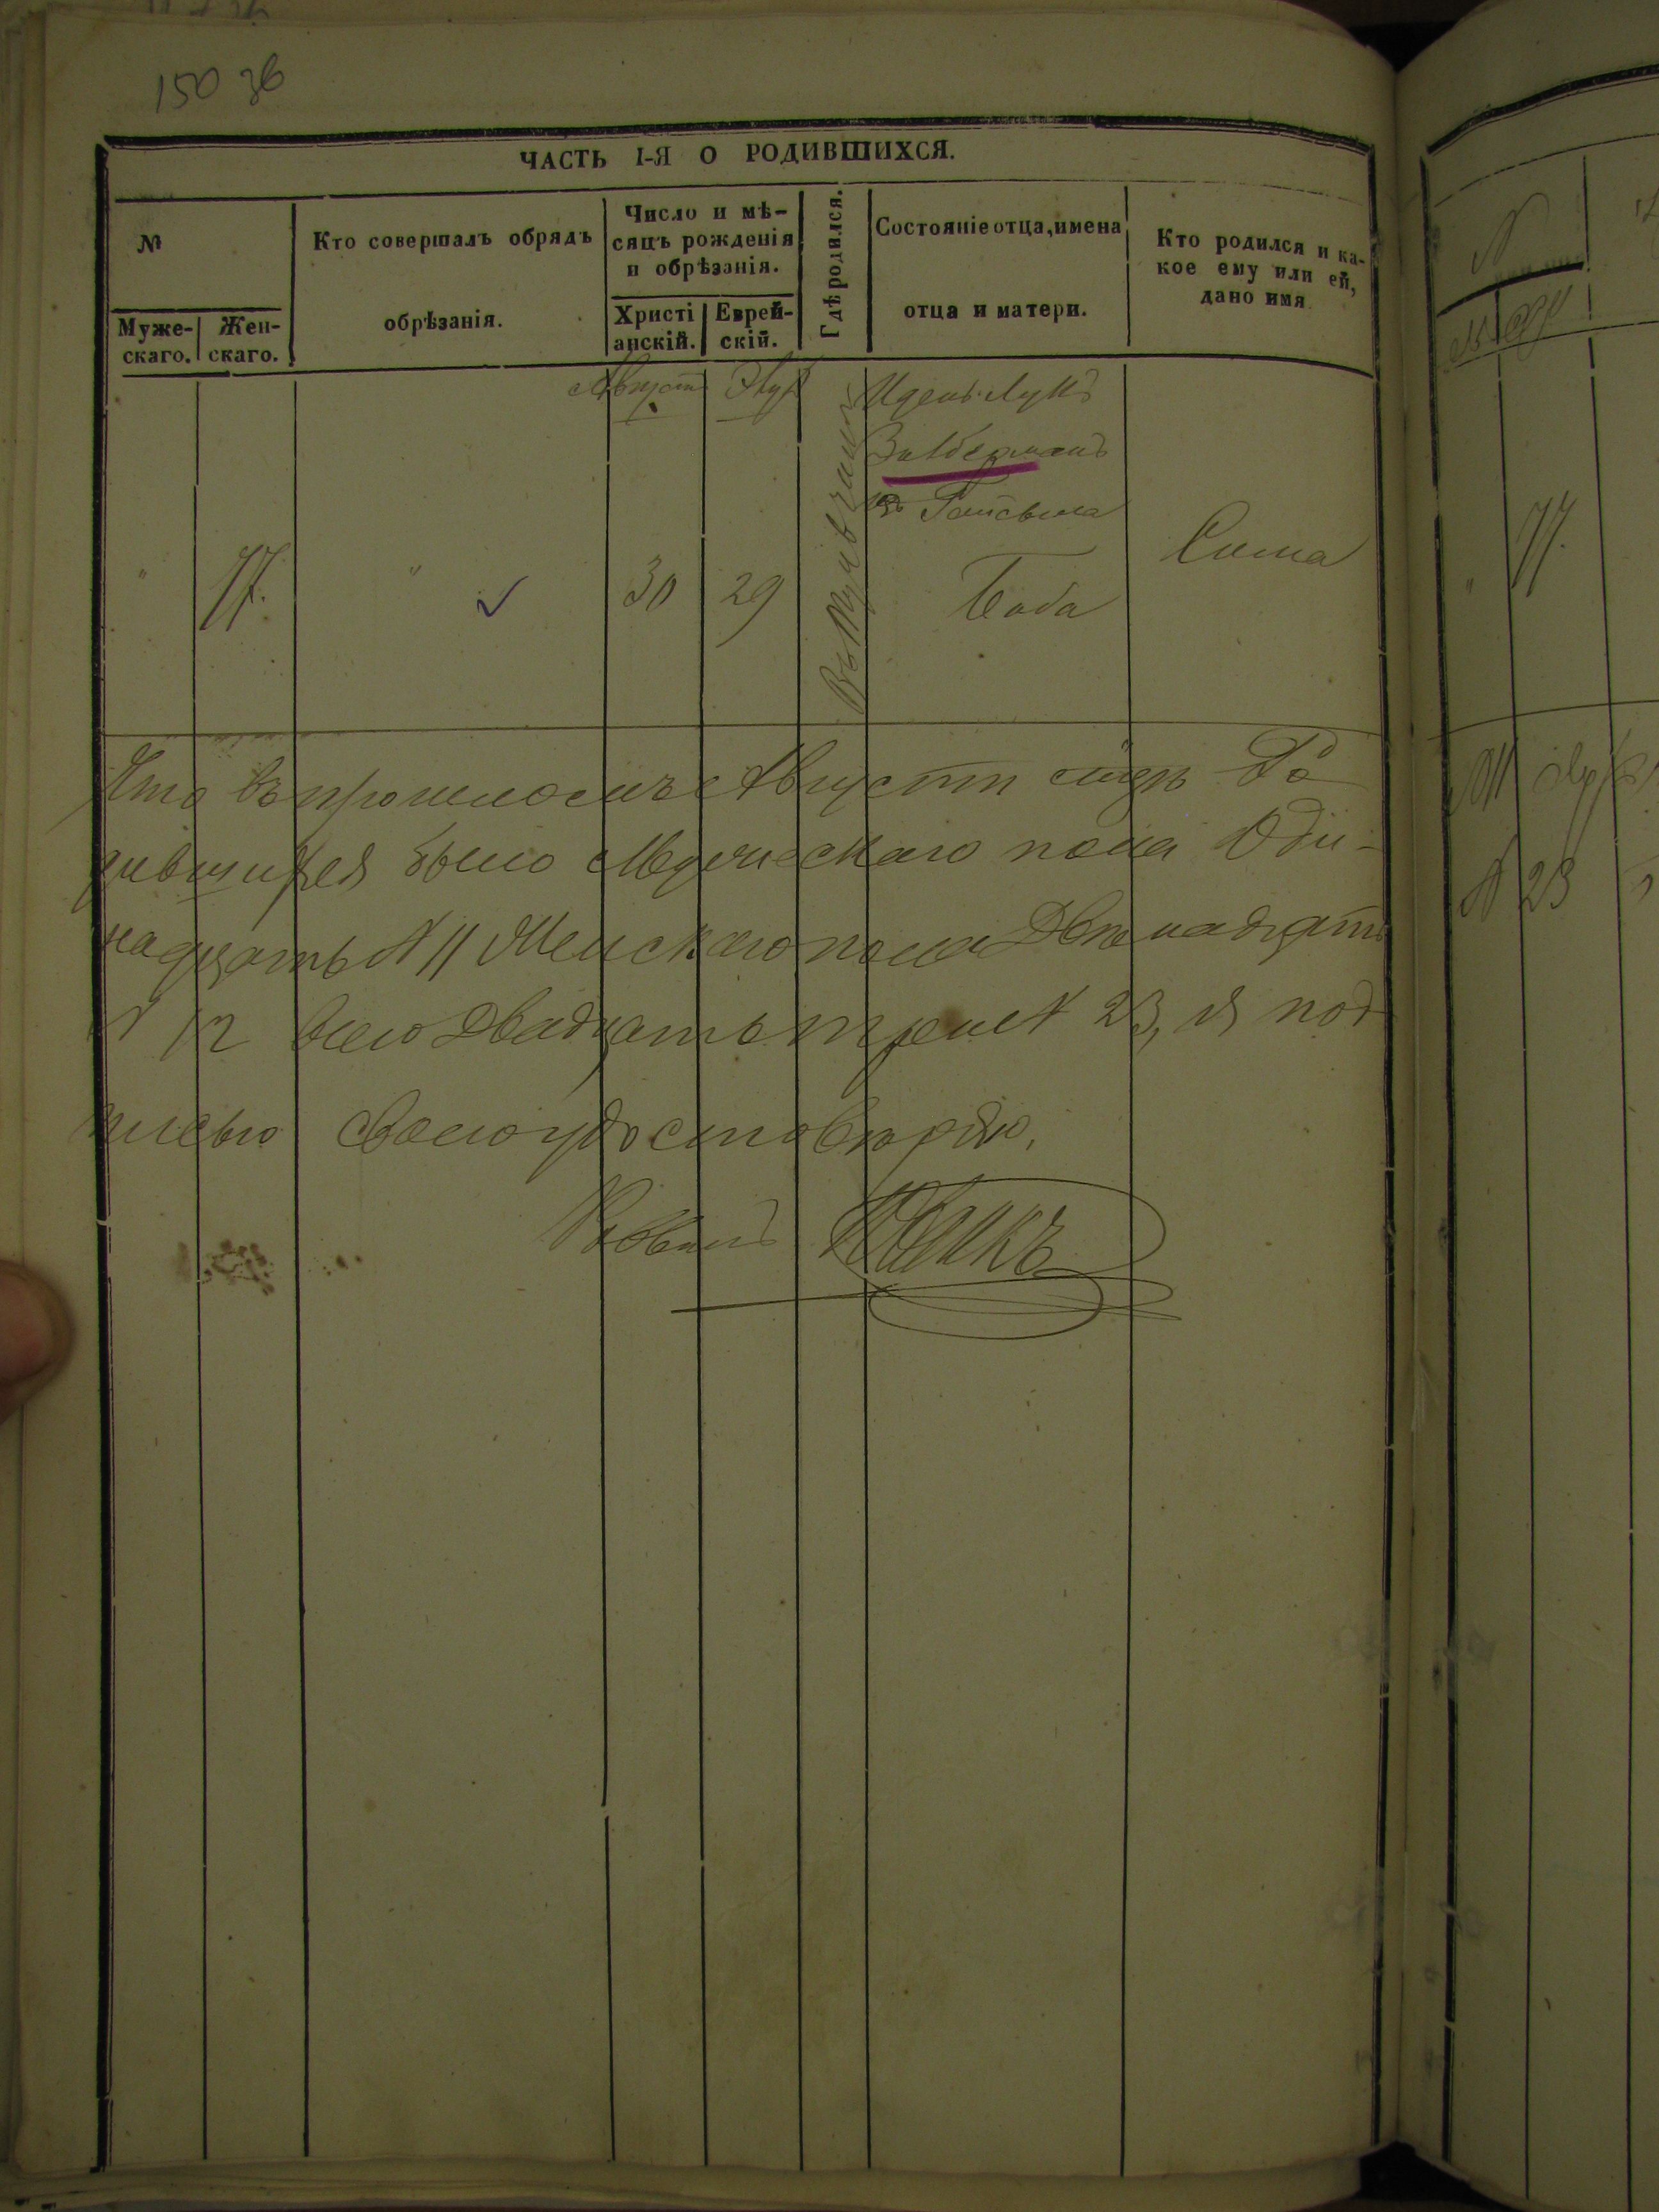 150 об
ЧАСТЬ I-Я О РОДИВШИХСЯ.
№
Муже-
скаго.
Жен-
скаго.
Кто совершалъ обрядъ
обрѣзанія.
Число и мѣ-
сяцъ рожденія
и обрѣзанія.
Христі
анскій.
Еврей-
скій.
Гдѣ родился.
Состояніе отца, имена
отца и матери.
Кто родился и ка-
кое ему или ей,
дано имя
Августъ
"
77.
"
30
29
Зилберманъ
Гайсына
Боба
Сима
Что въ прошломъ Августѣ мцѣ Ро
дившихся было Мужескаго пола Оди-
надцать № 11 Женскаго пола Двѣнадцать
№ 12 всего двадцать три № 23, я под
писью своею удостовѣряю.
Раввинъ
77.
№ 23